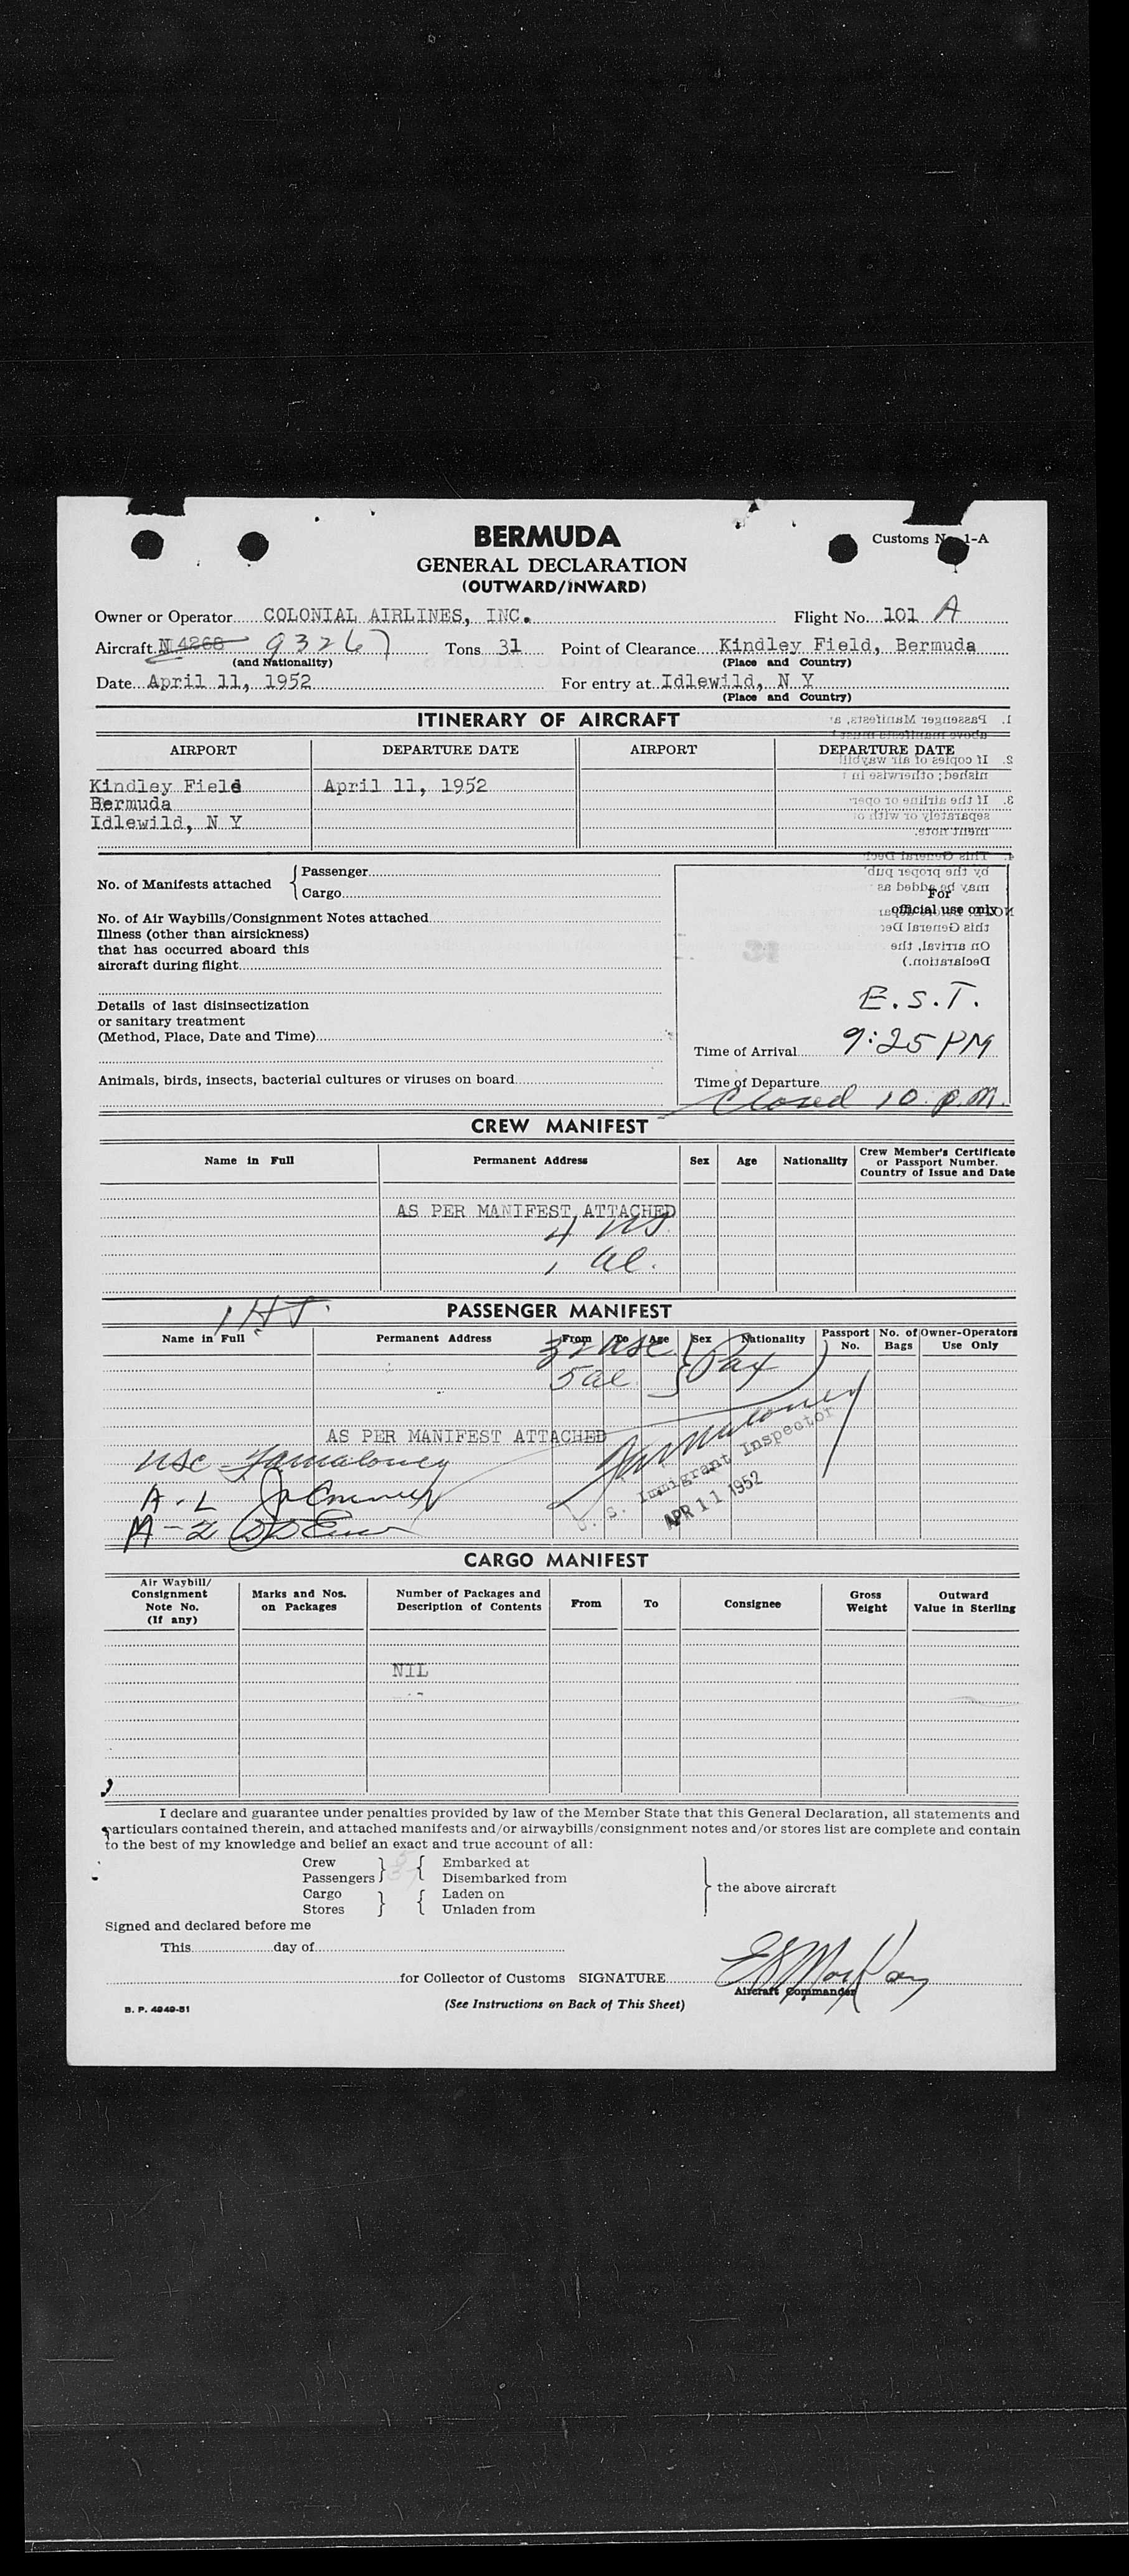 BERMUDA
Customs No. 1-A
GENERAL DECLARATION
(OUTWARD/INWARD)
Owner or Operator COLONIAL AIRLINES, INC. Flight No. 101 A
Aircraft N 4268 93267 Tons 31 Point of Clearance Kindley Field, Bermuda
(and Nationality) (Place and Country)
Date April 11, 1952 For entry at Idlewild, N Y
(Place and Country)
ITINERARY OF AIRCRAFT
AIRPORT DEPARTURE DATE AIRPORT DEPARTURE DATE
Kindley Field April 11, 1952
Bermuda
Idlewild, N Y
No. of Manifests attached { Passenger
Cargo
No. of Air Waybills/Consignment Notes attached
Illness (other than airsickness)
that has occurred aboard this
aircraft during flight
Details of last disinsectization
or sanitary treatment
(Method, Place, Date and Time)
Animals, birds, insects, bacterial cultures or viruses on board
For
official use only
E.S.T.
Time of Arrival 9:25 PM
Time of Departure
Closed 10 p.m.
CREW MANIFEST
Name in Full Permanent Address Sex Age Nationality Crew Member's Certificate
or Passport Number.
Country of Issue and Date
AS PER MANIFEST ATTACHED
4
1 al.
PASSENGER MANIFEST
Name in Full Permanent Address From To Age Sex Nationality Passport No. No. of Bags Owner-Operators Use Only
32 usc } Pax
5 al.
AS PER MANIFEST ATTACHED
usc
U. S. Immigrant Inspector
A-L
APR 11 1952
M-2
CARGO MANIFEST
Air Waybill/
Consignment
Note No.
(If any)
Marks and Nos.
on Packages
Number of Packages and
Description of Contents
From To Consignee
Gross
Weight
Outward
Value in Sterling
NIL
I declare and guarantee under penalties provided by law of the Member State that this General Declaration, all statements and
particulars contained therein, and attached manifests and/or airwaybills/consignment notes and/or stores list are complete and contain
to the best of my knowledge and belief an exact and true account of all:
Crew } { Embarked at
Passengers Disembarked from
the above aircraft
Cargo } { Laden on
Stores Unladen from
Signed and declared before me
This day of
for Collector of Customs SIGNATURE
Aircraft Commander
B. P. 4949-51 (See Instructions on Back of This Sheet)